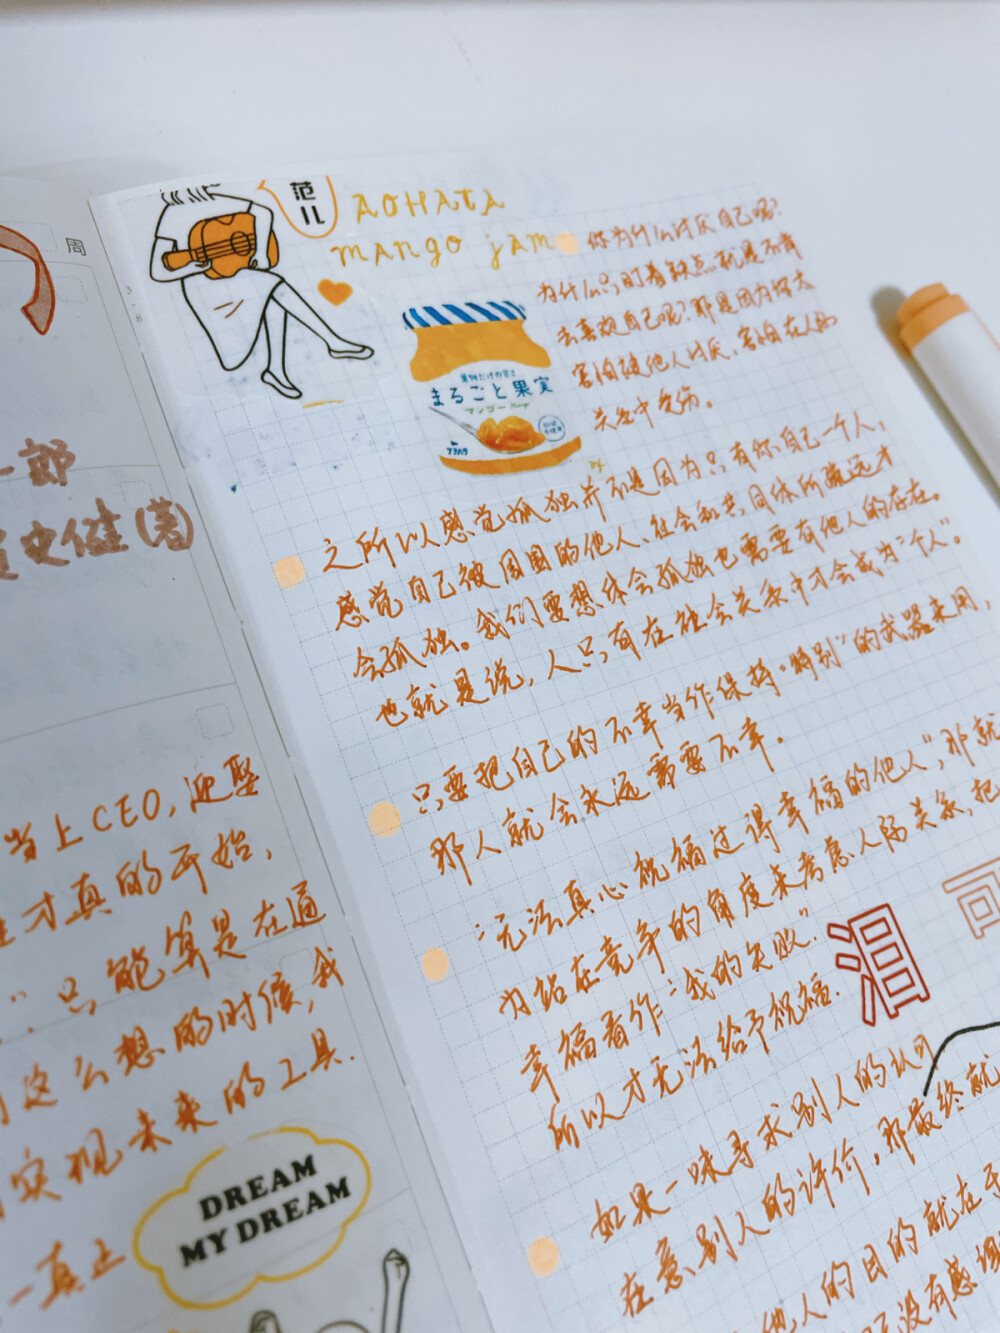 周
3
8
一郎
史健(著)
当上CEO,迎娶
才真的开始,
”只能算是在通
这么想的时候,我
实现未来的工具.
一真正
DREAM
MY DREAM
范儿
AOHATA
mango jam
果実だけの甘さ
まるごと果実
マンゴー
アヲハタ
你为什么讨厌自己呢?
为什么只盯着缺点就是不肯
去喜欢自己呢?那是因为你太
害怕被他人讨厌、害怕在人际
关系中受伤。
之所以感觉孤独并不是因为只有你自己一个人,
感觉自己被周围的他人、社会和共同体所疏远才
会孤独。我们要想体会孤独也需要有他人的存在。
也就是说,人只有在社会关系中才会成为“个人”。
只要把自己的不幸当作保持“特别”的武器来用,
那人就会永远需要不幸。
“无法真心祝福过得幸福的他人”,那就
为站在竞争的角度来考虑人际关系,把
幸福看作“我的失败”.
所以才无法给予祝福.
泪
可
如果一味寻求别人的认可
在意别人的评价,那最终就
他人的目的就在于
没有感